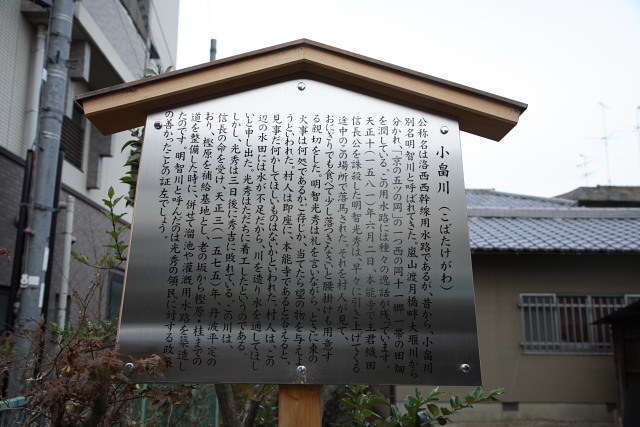 小畠川（こばたけがわ）
公称名は洛西西幹線用水路であるが、昔から、小畠川
別名明智川と呼ばれてきた。嵐山渡月橋畔大堰川から
分かれ、「京の五つの岡」の一つ西の岡十一郷一帯の田畑
を潤している。この用水路には種々の逸話が残っています。
天正十（一五八二）年六月二日、本能寺で主君織田
信長公を誅殺した明智光秀は、早々に引き上げてくる
途中のこの場所で落馬された。それを村人が見て、
おにぎりでも食べて少し落つきなさいと腰掛けも用意す
る親切をした。明智光秀は礼を言いながら、ときに東の
火事は何処であるかご存じか、当てたら望の物を与えよ
うといわれた。村人は即座に、本能寺であると答えると、
見事だ何かしてほしいものはないかといわれた。村人は、この
辺の水田には水が不足だから、川を造り水を通してほし
いと申し出た。光秀はただちに着工したというのである。
しかし、光秀は三日後に秀吉に敗れている。この川は、
信長の命を受け、天正三（一五七五）年、丹波平定の
おり、樫原を補給基地とし、老の坂から樫原・桂までの
道を整備した時に、併せて溜池や灌漑用水路を築造し
たのです。明智川と呼んだのは光秀の領民に対する政
の善かったことの証左でしょう。